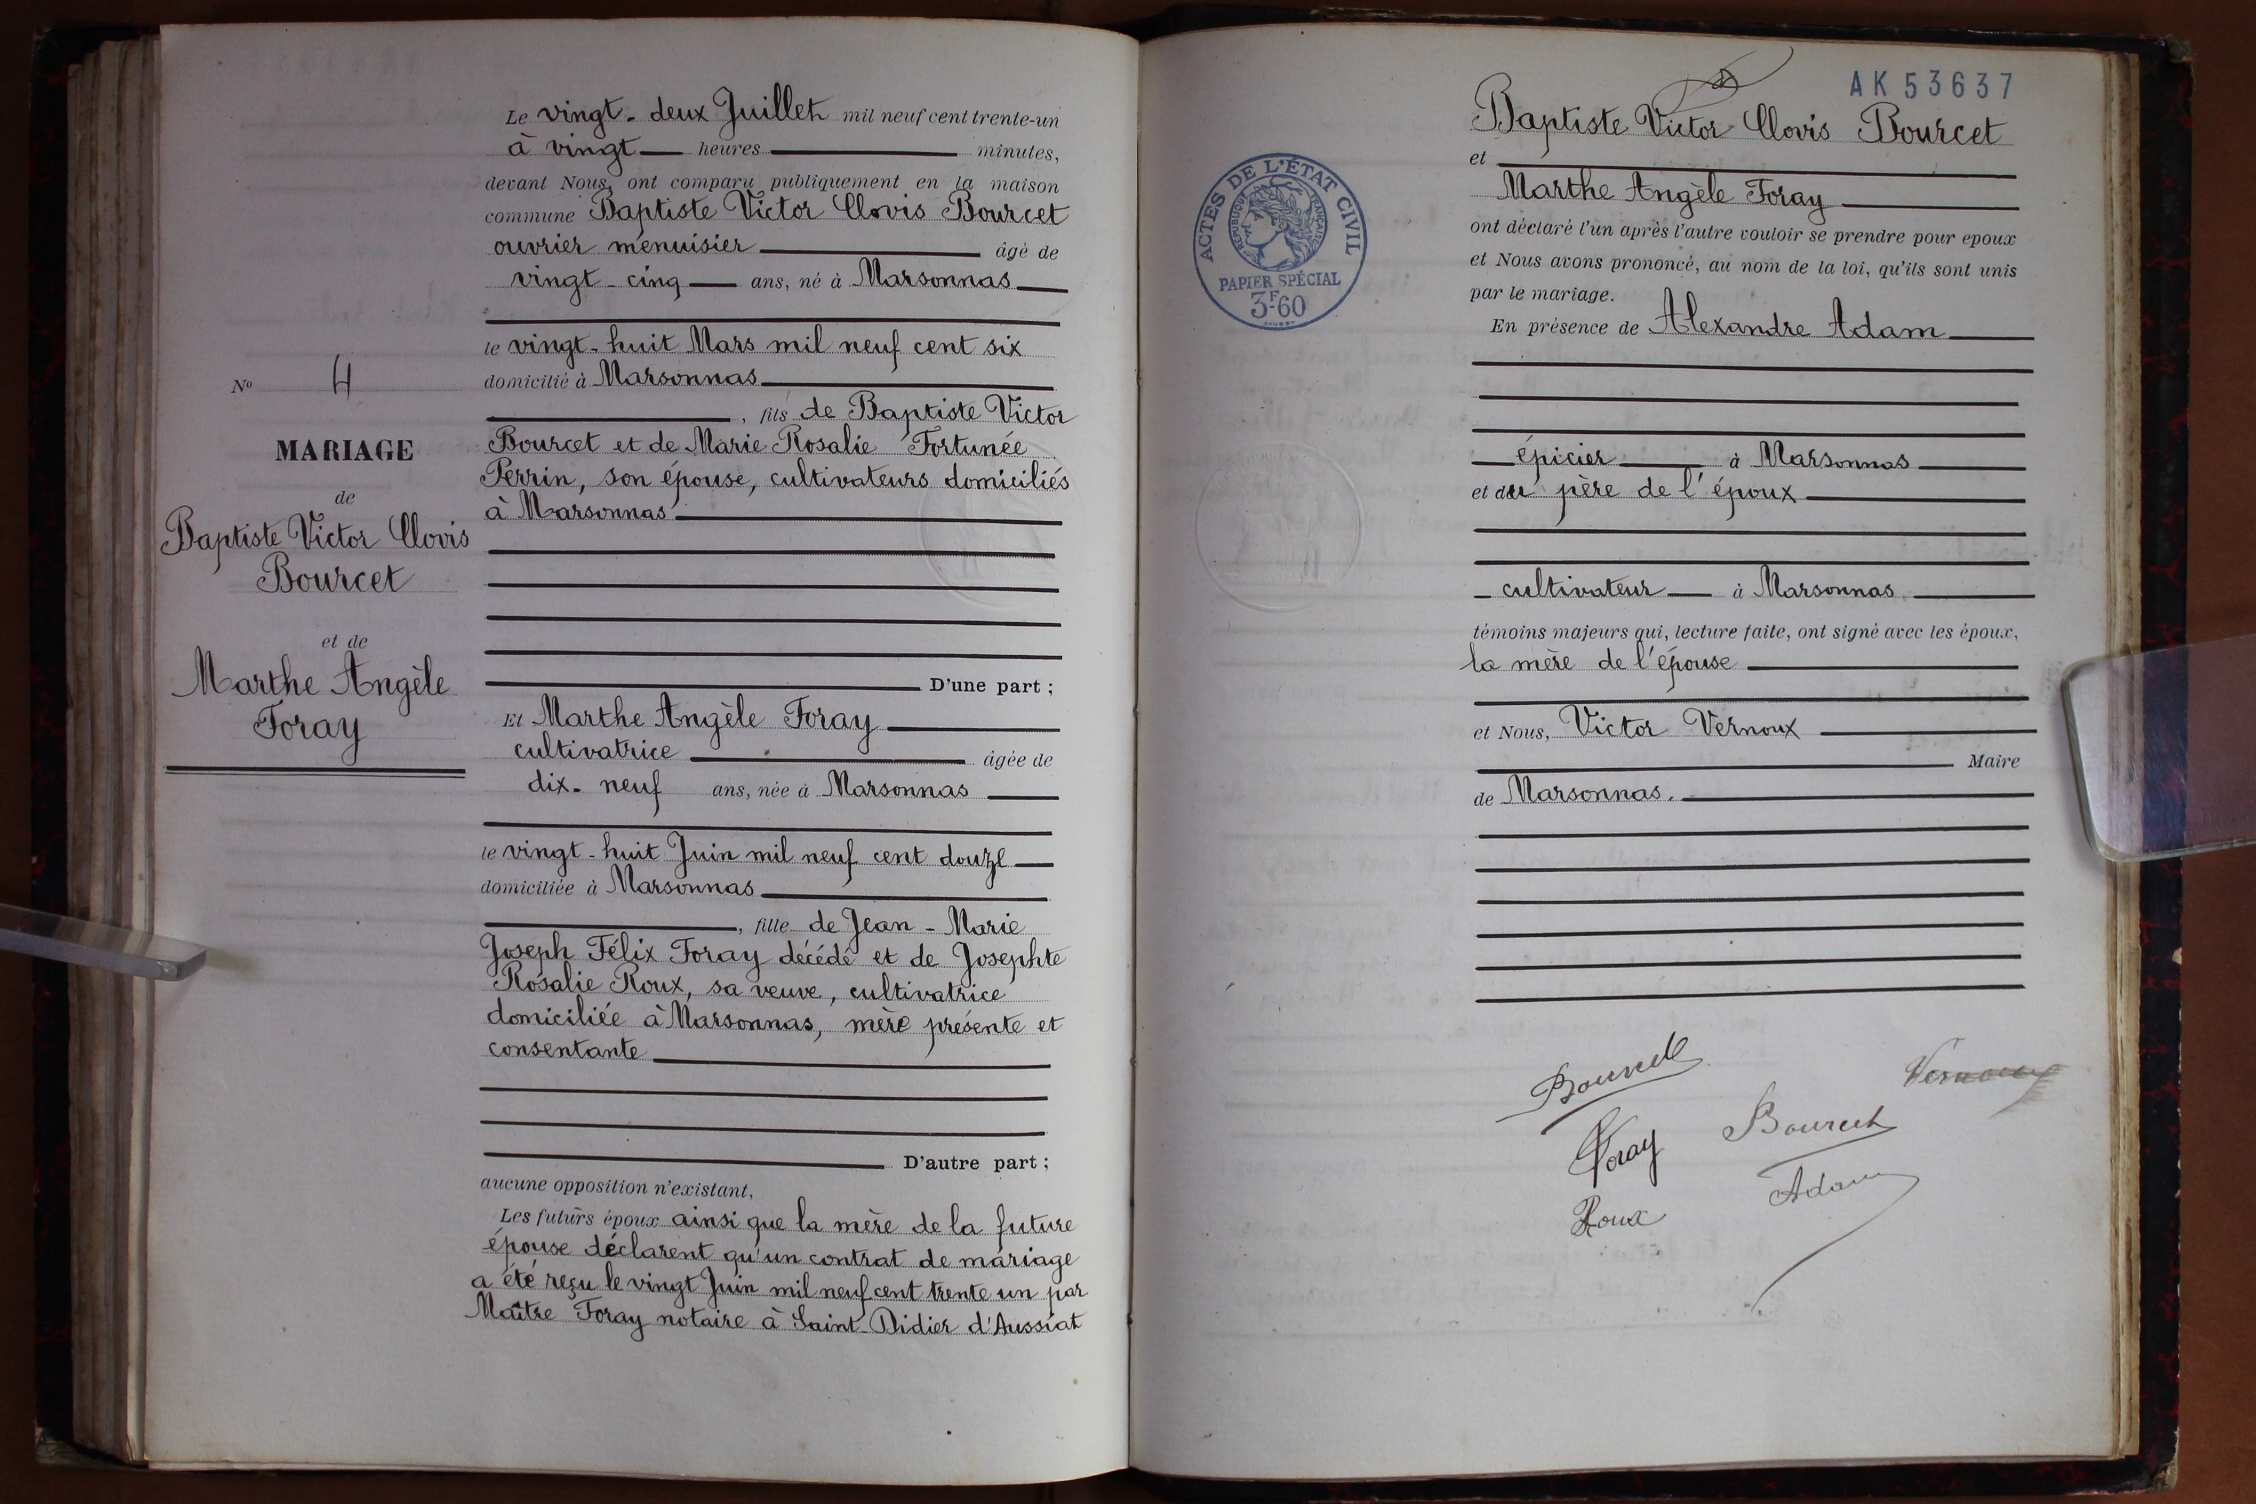 Le vingt-deux Juillet mil neuf cent trente-un
à vingt heures minutes,
devant Nous, ont comparu publiquement en la maison
commune Baptiste Victor Clovis Bourcet
ouvrier menuisier âgé de
vingt-cinq ans, né à Marsonnas
le vingt-huit Mars mil neuf cent six
domicilié à Marsonnas
, fils de Baptiste Victor
Bourcet et de Marie Rosalie Fortunée
Perrin, son épouse, cultivateurs domiciliés
à Marsonnas
D'une part ;
Nº 4
MARIAGE
de
Baptiste Victor Clovis
Bourcet
et de
Marthe Angèle
Foray
Et Marthe Angèle Foray
cultivatrice âgée de
dix-neuf ans, née à Marsonnas
le vingt-huit Juin mil neuf cent douze
domiciliée à Marsonnas
, fille de Jean-Marie
Joseph Félix Foray décédé et de Josephte
Rosalie Roux, sa veuve, cultivatrice
domiciliée à Marsonnas, mère présente et
consentante
D'autre part ;
aucune opposition n'existant,
Les futurs époux ainsi que la mère de la future
épouse déclarent qu'un contrat de mariage
a été reçu le vingt Juin mil neuf cent trente un par
Maître Foray notaire à Saint-Didier d'Aussiat
AK 53637
ACTES DE L'ÉTAT CIVIL
RÉPUBLIQUE FRANÇAISE
PAPIER SPÉCIAL
3F60
Baptiste Victor Clovis Bourcet
et
Marthe Angèle Foray
ont déclaré l'un après l'autre vouloir se prendre pour epoux
et Nous avons prononcé, au nom de la loi, qu'ils sont unis
par le mariage.
En présence de Alexandre Adam
épicier à Marsonnas
et du père de l'époux
cultivateur à Marsonnas
témoins majeurs qui, lecture faite, ont signé avec les époux,
la mère de l'épouse
et Nous, Victor Vernoux
Maire
de Marsonnas.
Bourcet
Vernoux
Foray
Bourcet
Adam
Roux